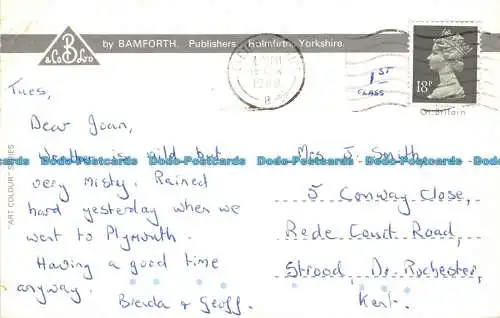 B
& Co Ltd
by BAMFORTH. Publishers. Holmfirth, Yorkshire.
1ST
CLASS
18P
Gt. Britain
"ART COLOUR" SERIES
Tues,
Dear Joan,
Weather is mild but
very misty. Rained
hard yesterday when we
went to Plymouth.
Having a good time
anyway.
Brenda & Geoff.
Mrs J. Smith,
5 Conway Close,
Rede Court Road,
Strood, Nr. Rochester,
Kent.
Do-Postcards Do-Postcards Do-Postcards Do-Postcards